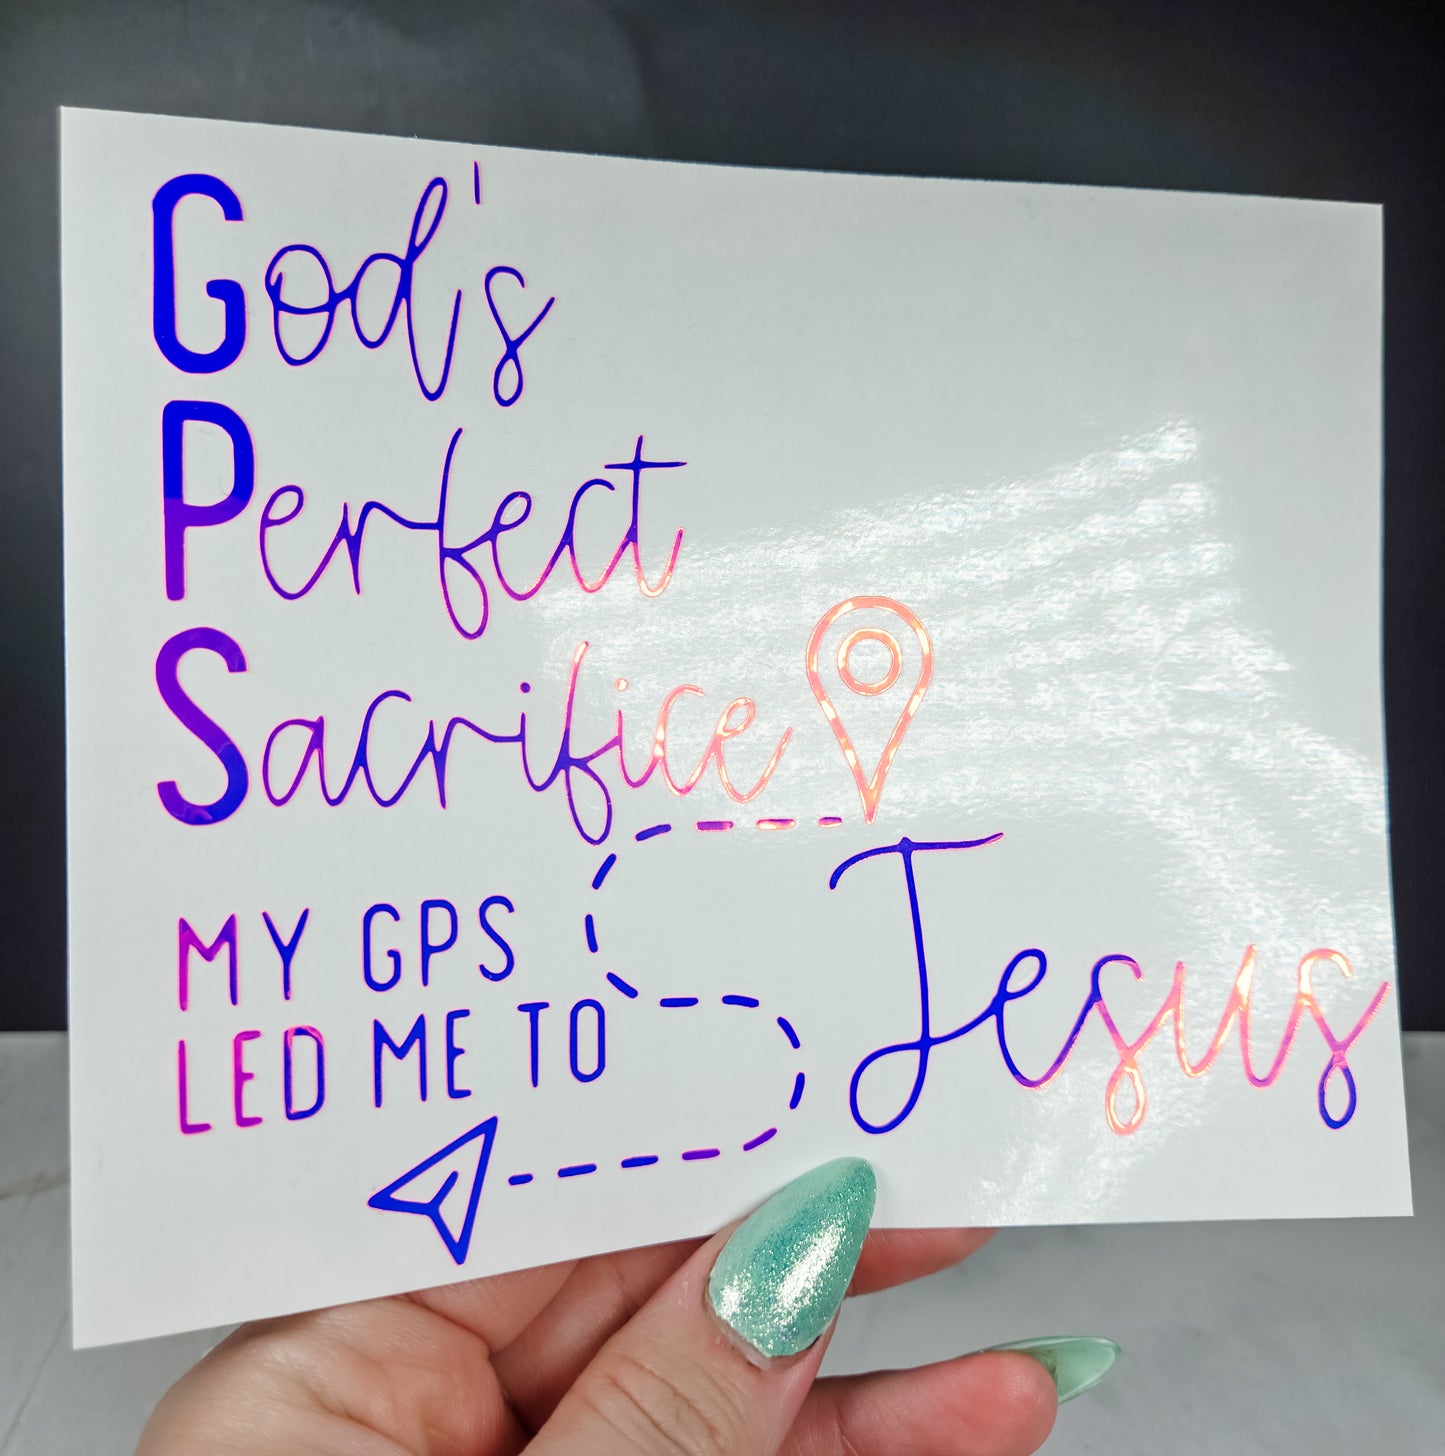 God's
Perfect
Sacrifice
MY GPS
LED ME TO
Jesus